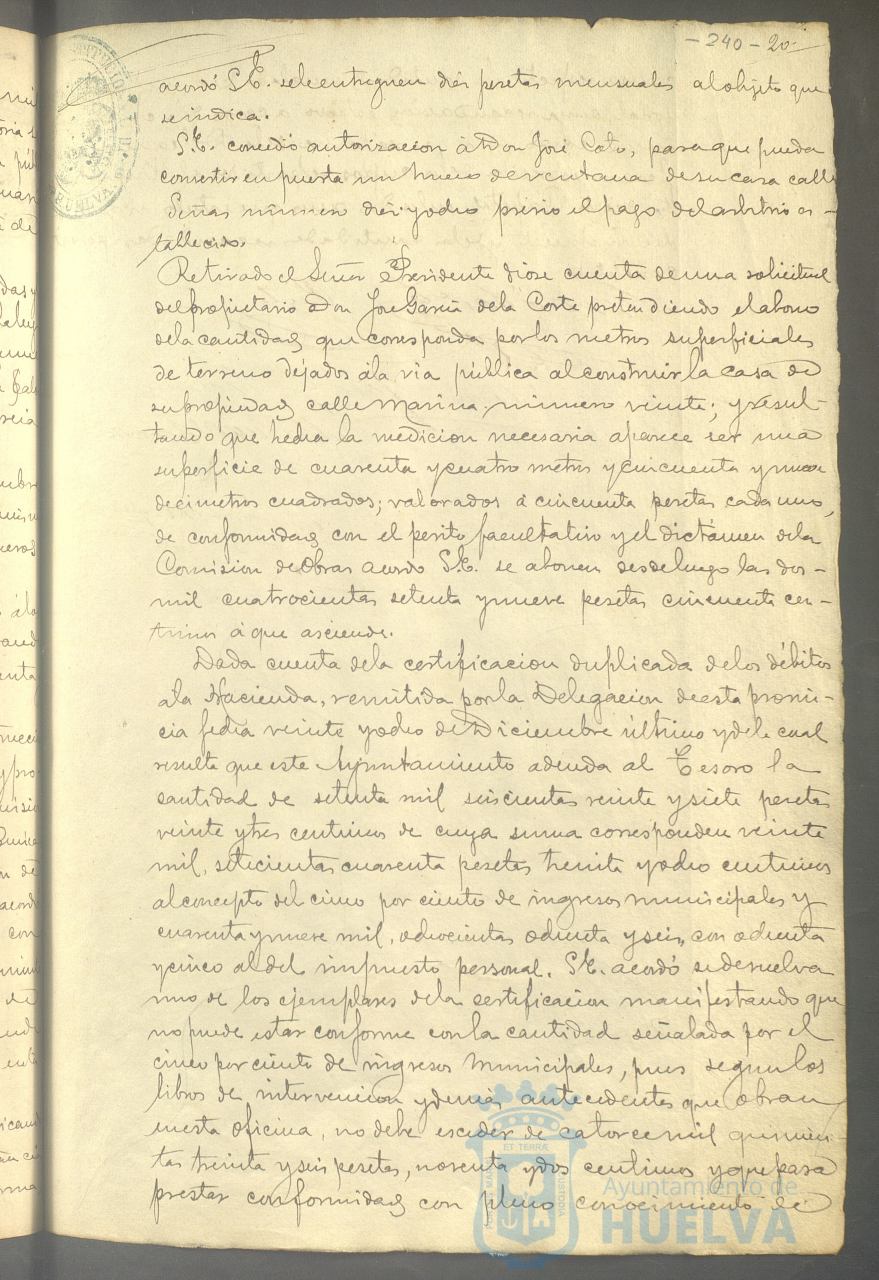 -240-20-
acordó S.E. sele entreguen diés pesetas mensuales al objeto que
se indica.
S.E. concedió autorizacion á Don José Cato, para que pueda
convertir en puerta un hueco de ventana de su casa calle
Señas número diés y ocho previo el pago del arbitrio es-
tablecido.
Retirado el Señor Presidente diose cuenta de una solicitud
del propietario Don José García de la Corte pretendiendo el abono
de la cantidad que corresponda por los metros superficiales
de terreno dejados á la via pública al construir la casa de
su propiedad calle Marina, número veinte; y resul-
tando que hecha la medicion necesaria aparece ser una
superficie de cuarenta y cuatro metros y cincuenta y nueve
decimetros cuadrados; valorados á cincuenta pesetas cada uno,
de conformidad con el perito facultativo y el dictámen de la
Comision de Obras acordó S.E. se abonen desde luego las dos-
mil cuatrocientas setenta y nueve pesetas cincuenta cen-
timos á que asciende.
Dada cuenta de la certificacion duplicada de los débitos
a la Hacienda, remitida por la Delegacion de esta provin-
cia fecha veinte y ocho de Diciembre último y de la cual
resulta que este Ayuntamiento adeuda al Tesoro la
cantidad de setenta mil seiscientas veinte y siete pesetas
veinte y tres centimos de cuya suma corresponden veinte
mil, setecientas cuarenta pesetas treinta y ocho centimos
al concepto del cinco por ciento de ingresos municipales y
cuarenta y nueve mil, ochocientas ochenta y seis, con ochenta
y cinco al del impuesto personal. S.E. acordó se devuelva
uno de los ejemplares de la certificacion manifestando que
no puede estar conforme con la cantidad señalada por el
cinco por ciento de ingresos municipales, pues segun los
libros de intervencion y demás antecedentes que obran
en esta oficina, no debe esceder de catorce mil quinien-
tas treinta y seis pesetas, noventa y dos centimos y que para
prestar conformidad con pleno conocimiento de
Ayuntamiento de
HUELVA